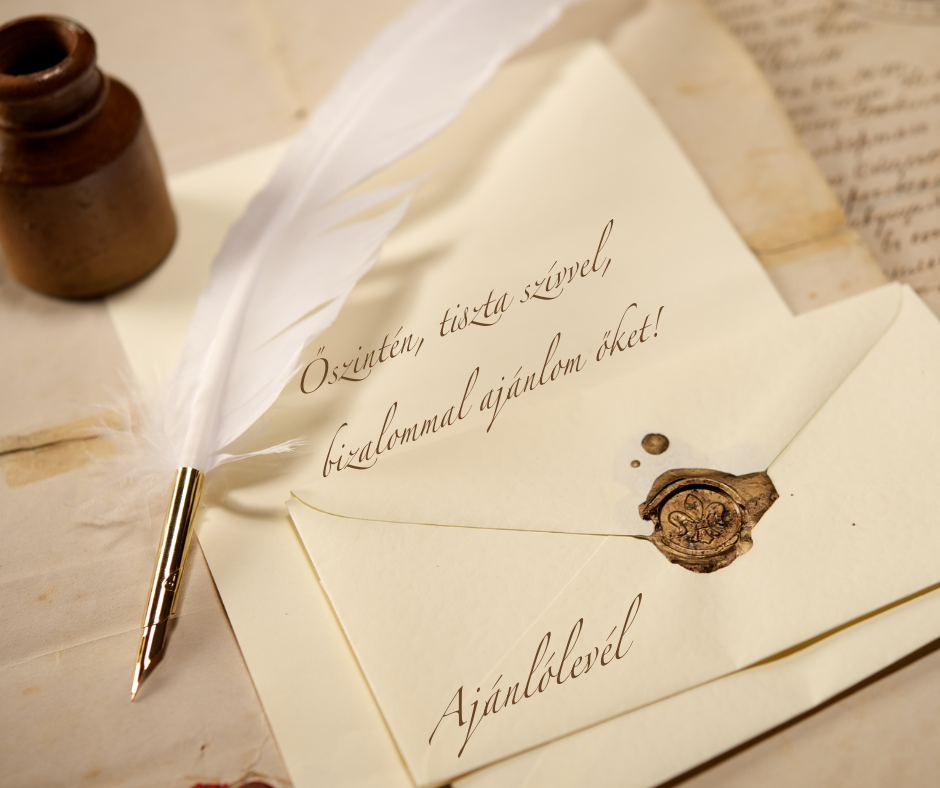 Őszintén, tiszta szívvel,
bizalommal ajánlom őket!
Ajánlólevél